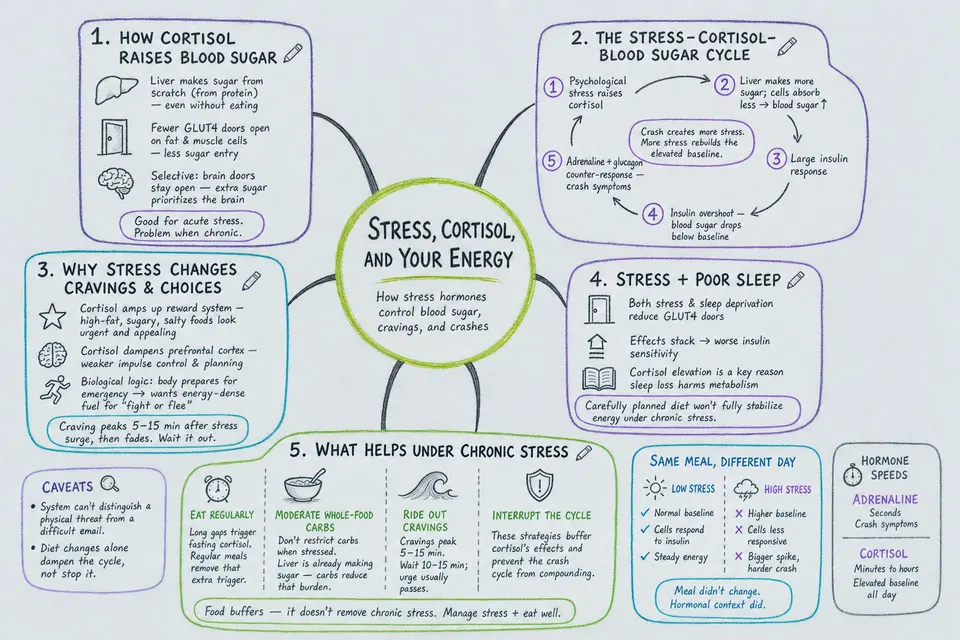 1. HOW CORTISOL
RAISES BLOOD SUGAR
Liver makes sugar from
scratch (from protein)
— even without eating
Fewer GLUT4 doors open
on fat & muscle cells
— less sugar entry
Selective: brain doors
stay open — extra sugar
prioritizes the brain
Good for acute stress.
Problem when chronic.
2. THE STRESS–CORTISOL–
BLOOD SUGAR CYCLE
1 Psychological
stress raises
cortisol
2 Liver makes more
sugar; cells absorb
less → blood sugar ↑
3 Large insulin
response
4 Insulin overshoot —
blood sugar drops
below baseline
5 Adrenaline + glucagon
counter-response —
crash symptoms
Crash creates more stress.
More stress rebuilds the
elevated baseline.
STRESS, CORTISOL,
AND YOUR ENERGY
How stress hormones
control blood sugar,
cravings, and crashes
3. WHY STRESS CHANGES
CRAVINGS & CHOICES
Cortisol amps up reward system —
high-fat, sugary, salty foods look
urgent and appealing
Cortisol dampens prefrontal cortex —
weaker impulse control & planning
Biological logic: body prepares for
emergency → wants energy-dense
fuel for "fight or flee"
Craving peaks 5–15 min after stress
surge, then fades. Wait it out.
4. STRESS + POOR SLEEP
Both stress & sleep deprivation
reduce GLUT4 doors
Effects stack → worse insulin
sensitivity
Cortisol elevation is a key reason
sleep loss harms metabolism
Carefully planned diet won't fully stabilize
energy under chronic stress.
5. WHAT HELPS UNDER CHRONIC STRESS
EAT REGULARLY
Long gaps trigger
fasting cortisol.
Regular meals
remove that
extra trigger.
MODERATE WHOLE-FOOD
CARBS
Don't restrict carbs
when stressed.
Liver is already making
sugar — carbs reduce
that burden.
RIDE OUT
CRAVINGS
Cravings peak
5–15 min.
Wait 10–15 min;
urge usually
passes.
INTERRUPT THE CYCLE
These strategies buffer
cortisol's effects and
prevent the crash
cycle from compounding.
Food buffers — it doesn't remove chronic stress. Manage stress + eat well.
CAVEATS
• System can't distinguish a
physical threat from a
difficult email.
• Diet changes alone
dampen the cycle,
not stop it.
SAME MEAL, DIFFERENT DAY
LOW STRESS
✓ Normal baseline
✓ Cells respond
to insulin
✓ Steady energy
HIGH STRESS
✗ Higher baseline
✗ Cells less
responsive
✗ Bigger spike,
harder crash
Meal didn't change.
Hormonal context did.
HORMONE
SPEEDS
ADRENALINE
Seconds
Crash symptoms
CORTISOL
Minutes to hours
Elevated baseline
all day